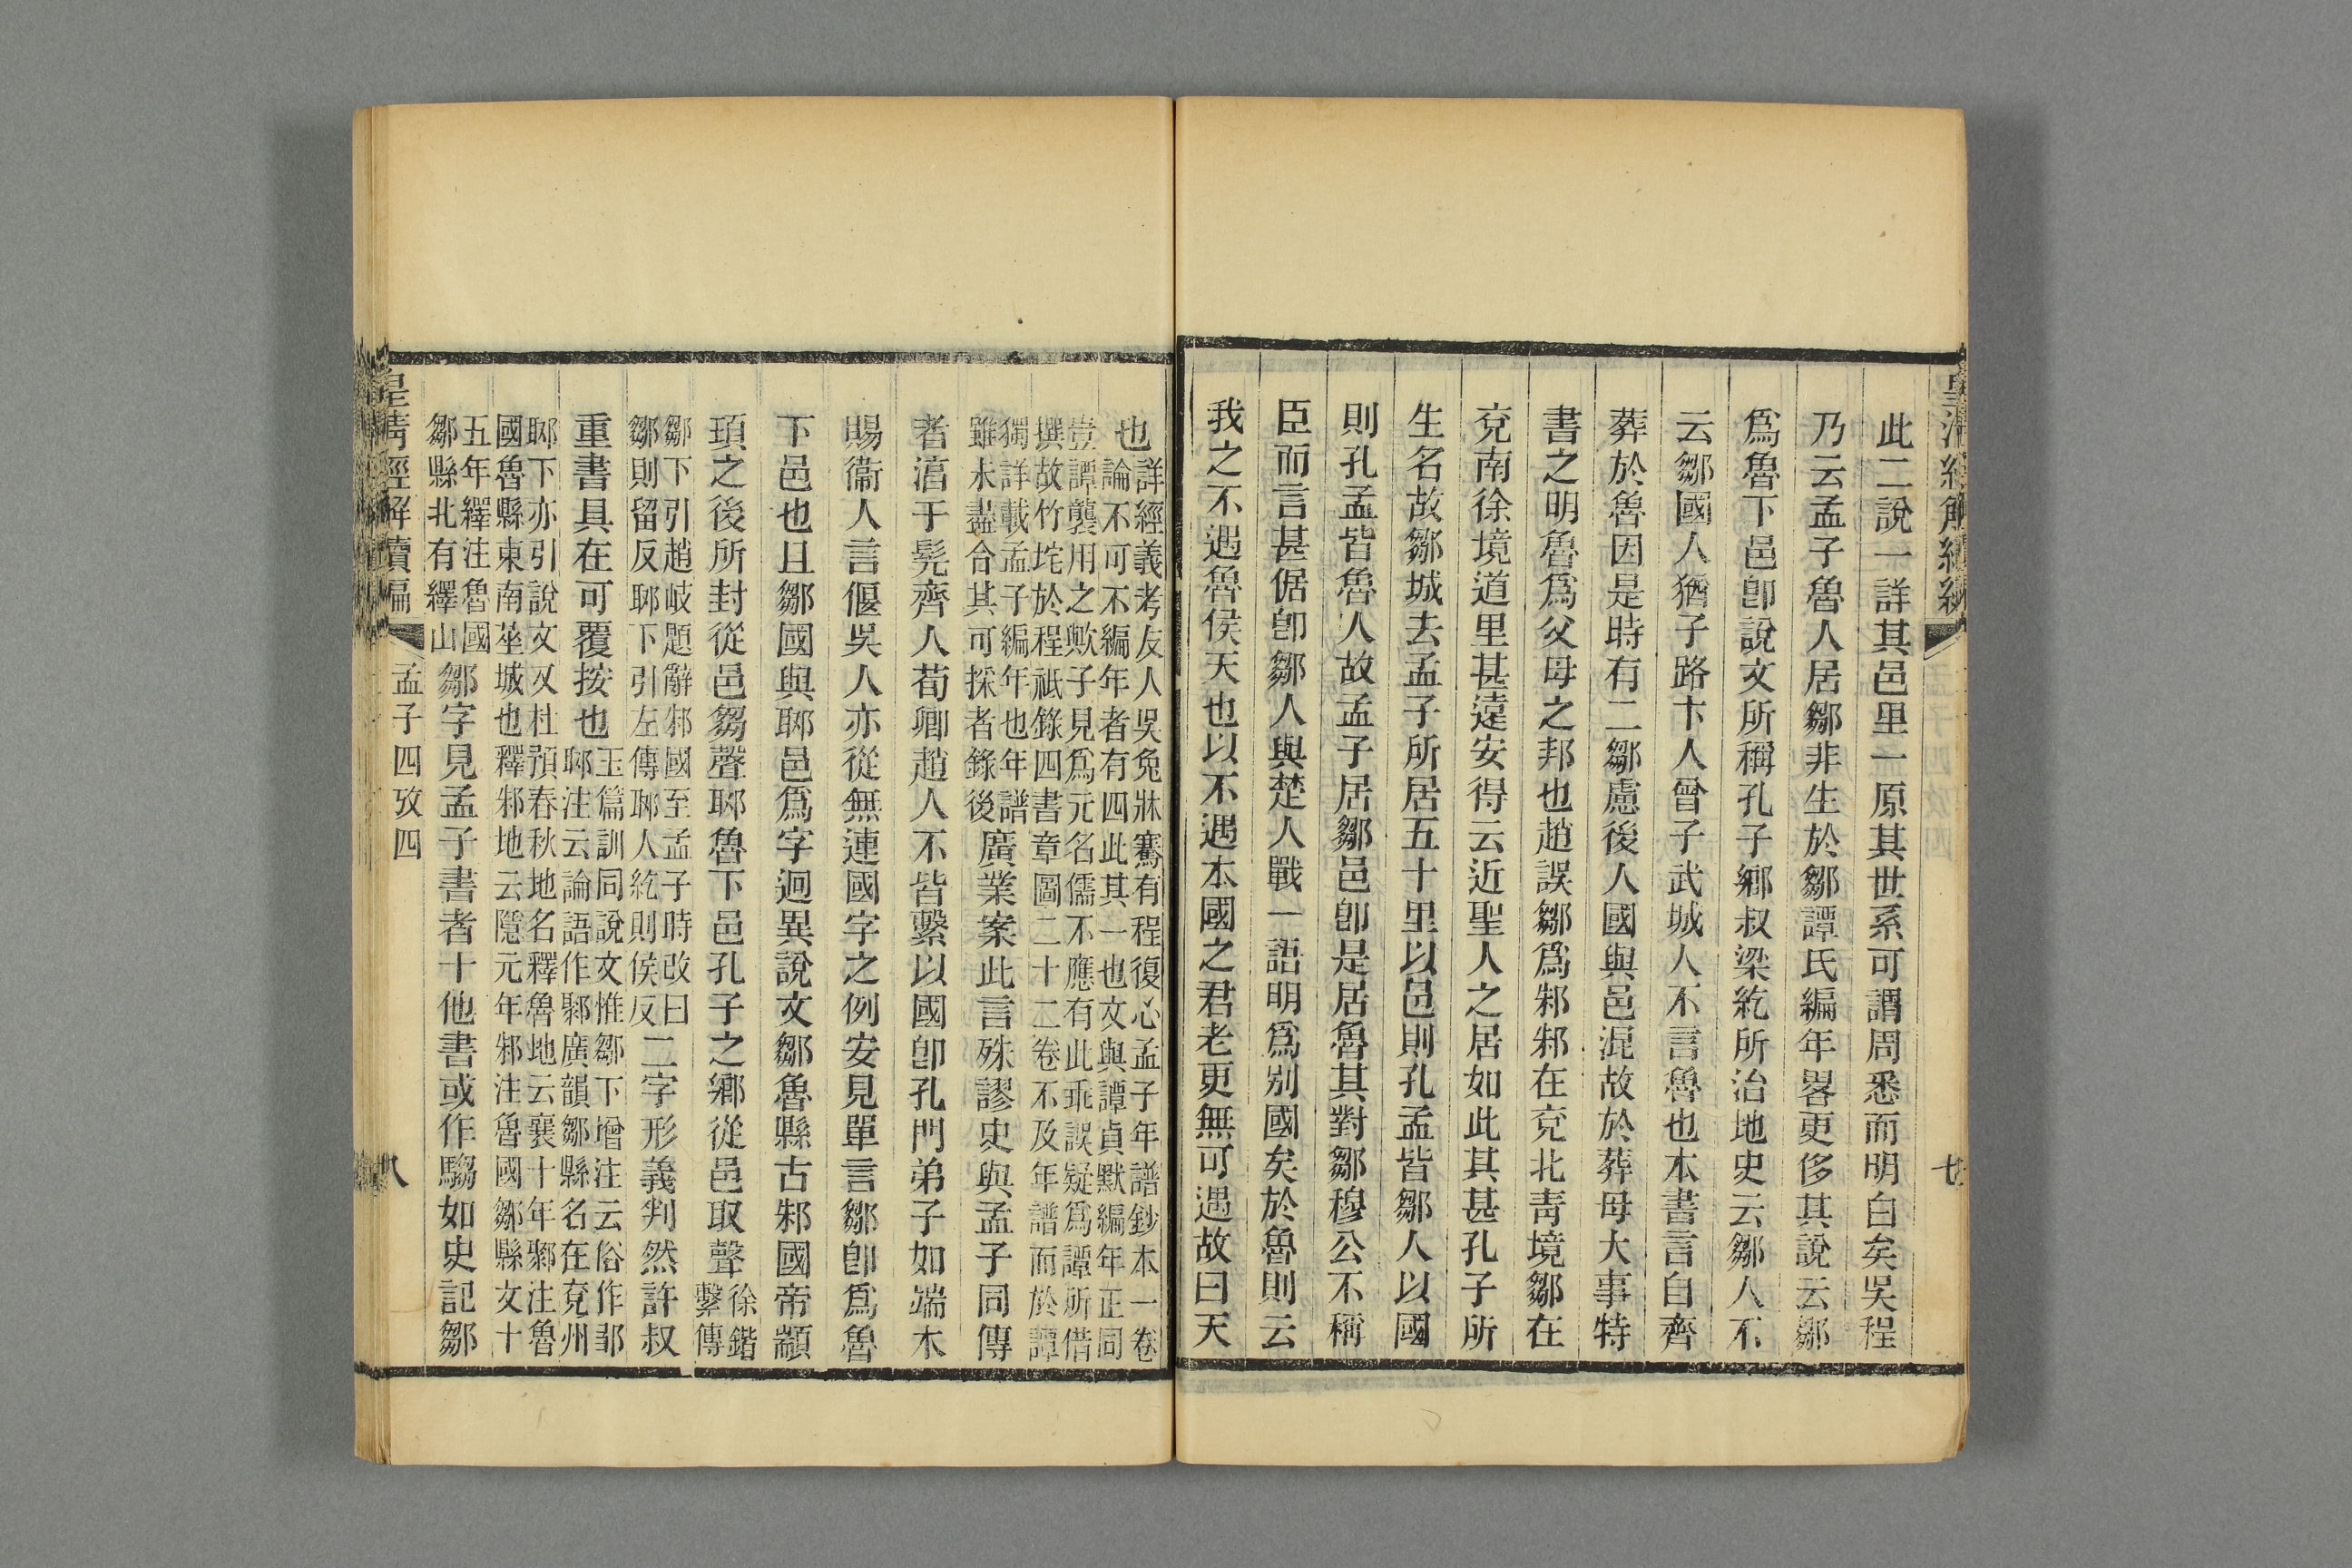 皇清經解續編
七
此二說一詳其邑里一原其世系可謂周悉而明白矣吳程
乃云孟子魯人居鄒非生於鄒譚氏編年畧更侈其說云鄒
爲魯下邑卽說文所稱孔子鄉叔梁紇所治地史云鄒人不
云鄒國人猶子路卞人曾子武城人不言魯也本書言自齊
葬於魯因是時有二鄒慮後人國與邑混故於葬母大事特
書之明魯爲父母之邦也趙誤鄒爲邾邾在兗北靑境鄒在
兗南徐境道里甚遠安得云近聖人之居如此其甚孔子所
生名故鄒城去孟子所居五十里以邑則孔孟皆鄒人以國
則孔孟皆魯人故孟子居鄒邑卽是居魯其對鄒穆公不稱
臣而言甚倨卽鄒人與楚人戰一語明爲別國矣於魯則云
我之不遇魯侯天也以不遇本國之君老更無可遇故曰天
也
詳經義考友人吳兔牀騫有程復心孟子年譜鈔本一卷
論不可不編年者有四此其一也文與譚貞默編年正同
豈譚襲用之歟子見爲元名儒不應有此乖誤疑爲譚所借
撰故竹垞於程祇錄四書章圖二十二卷不及年譜而於譚
獨詳載孟子編年也年譜
雖未盡合其可採者錄後
廣業案此言殊謬史與孟子同傳
者湻于髡齊人荀卿趙人不皆繫以國卽孔門弟子如端木
賜衞人言偃吳人亦從無連國字之例安見單言鄒卽爲魯
下邑也且鄒國與郰邑爲字迥異說文鄒魯縣古邾國帝顓
頊之後所封從邑芻聲郰魯下邑孔子之鄉從邑取聲
徐鍇
繫傳
鄒下引趙岐題辭邾國至孟子時改曰
鄒則留反郰下引左傳郰人紇則侯反
二字形義判然許叔
重書具在可覆按也
玉篇訓同說文惟鄒下增注云俗作邹
郰注云論語作鄹廣韻鄒縣名在兗州
郰下亦引說文又杜預春秋地名釋魯地云襄十年鄹注魯
國魯縣東南莝城也釋邾地云隱元年邾注魯國鄒縣文十
五年繹注魯國
鄒縣北有繹山
鄒字見孟子書者十他書或作騶如史記鄒
皇清經解續編
孟子四攷四
八